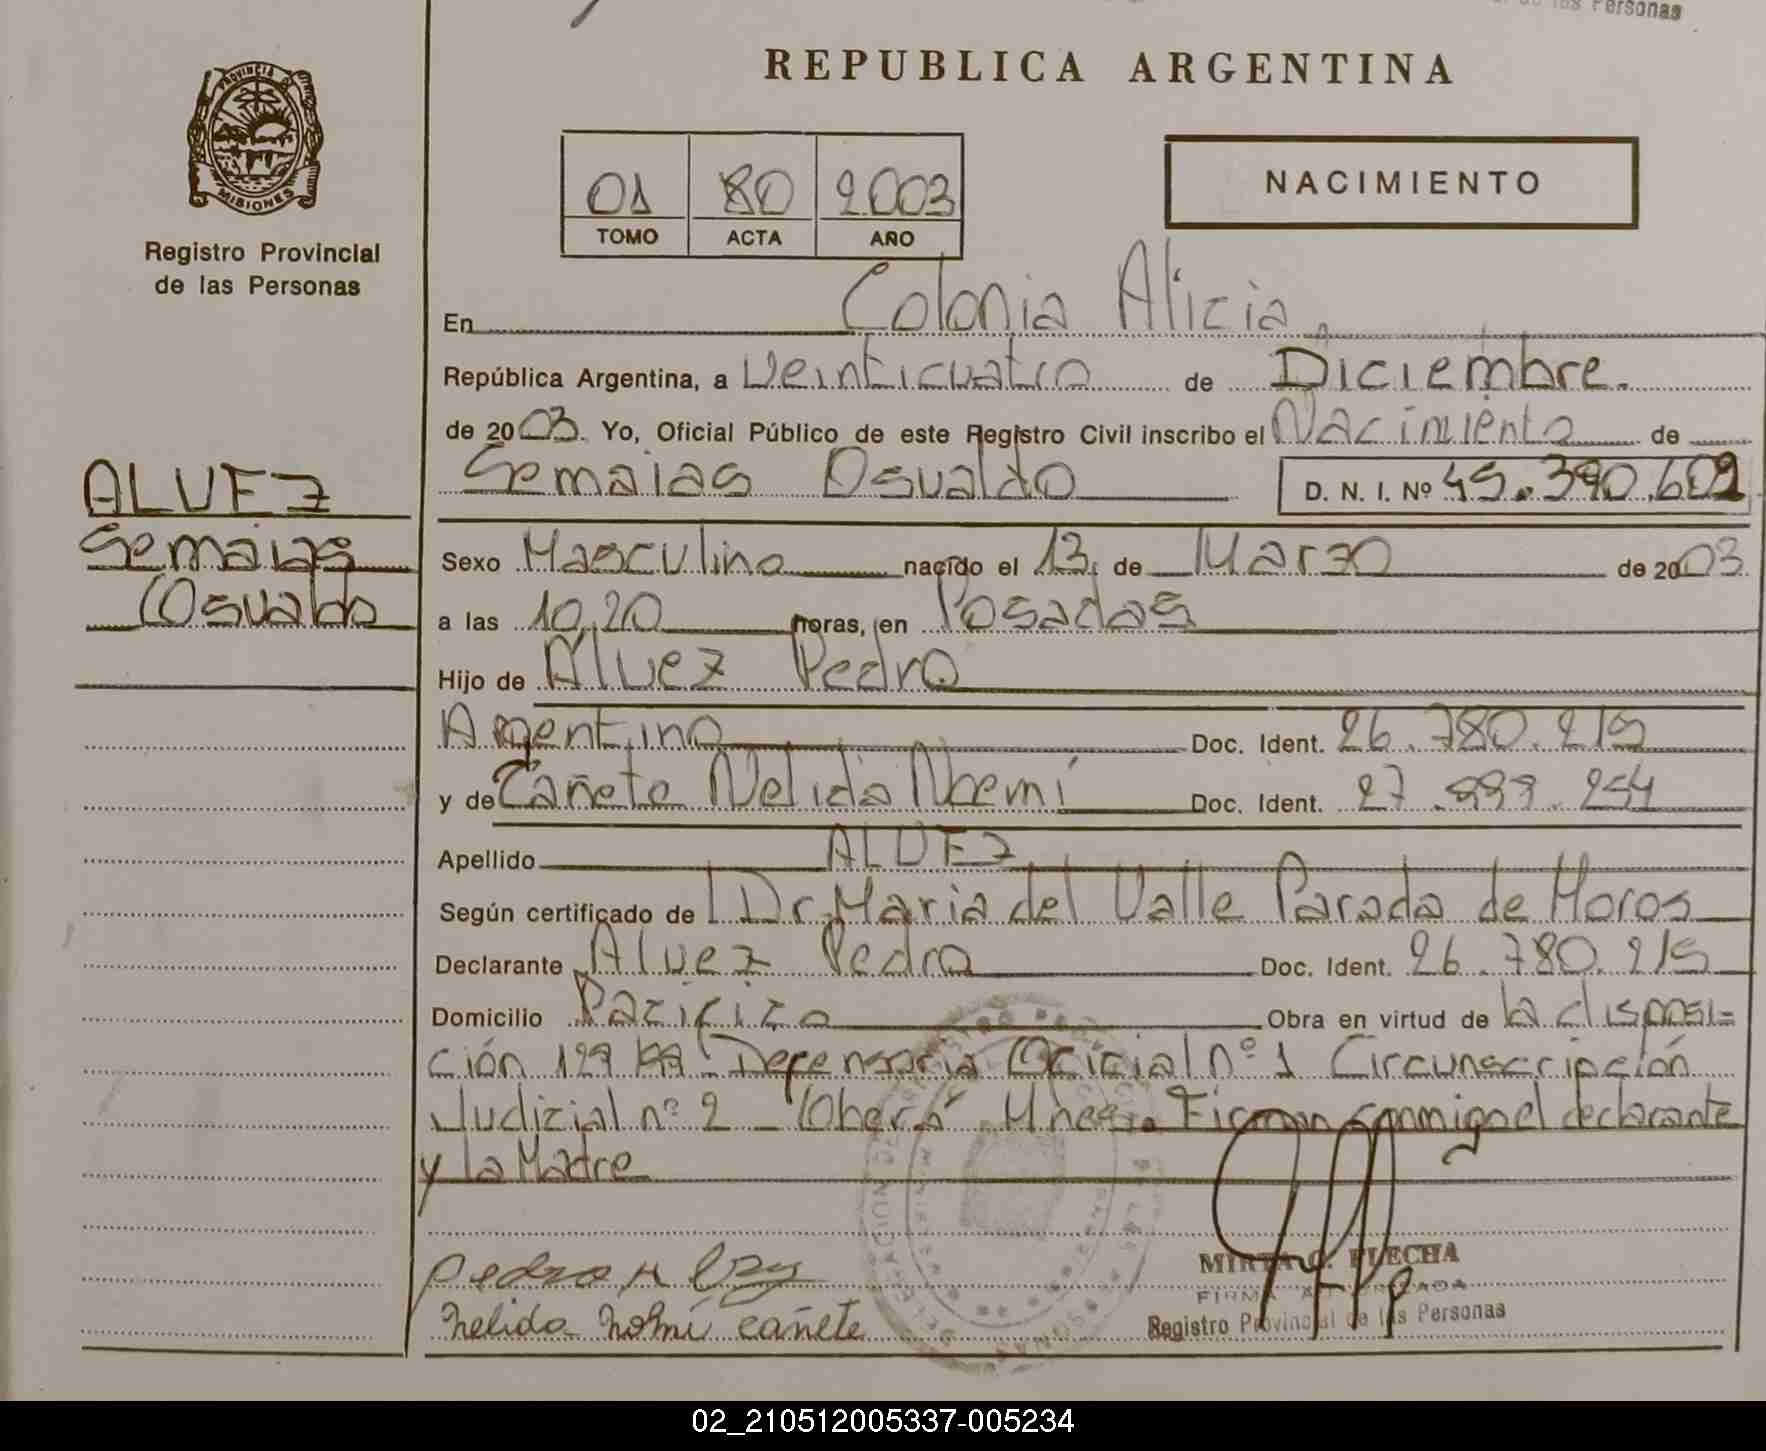 de las Personas
REPUBLICA ARGENTINA
PROVINCIA DE
MISIONES
Registro Provincial
de las Personas
01 80 2.003
TOMO ACTA AÑO
NACIMIENTO
En Colonia Alicia
República Argentina, a Veinticuatro de Diciembre.
de 2003. Yo, Oficial Público de este Registro Civil inscribo el Nacimiento de
Semaias Osvaldo D. N. I. Nº 45.390.602
ALVEZ
Semaias
Osvaldo
Sexo Masculino nacido el 13 de Marzo de 2003.
a las 10,20 horas, en Posadas
Hijo de Alvez Pedro
Argentino Doc. Ident. 26.780.215
y de Cañete Nelida Noemí Doc. Ident. 27.999.254
Apellido ALVEZ
Según certificado de Dr. Maria del Valle Parada de Moros
Declarante Alvez Pedro Doc. Ident. 26.780.215
Domicilio Pacifico Obra en virtud de la disposi=
ción 129 Defensoria Oficial nº 1 Circunscripción
Judicial nº 2 - Oberá Mnes. Firman conmigo el declarante
y la Madre
Pedro Alvez
Nelida Nohmí Cañete
MIRTA C. FLECHA
FIRMA AUTORIZADA
Registro Provincial de las Personas
02_210512005337-005234